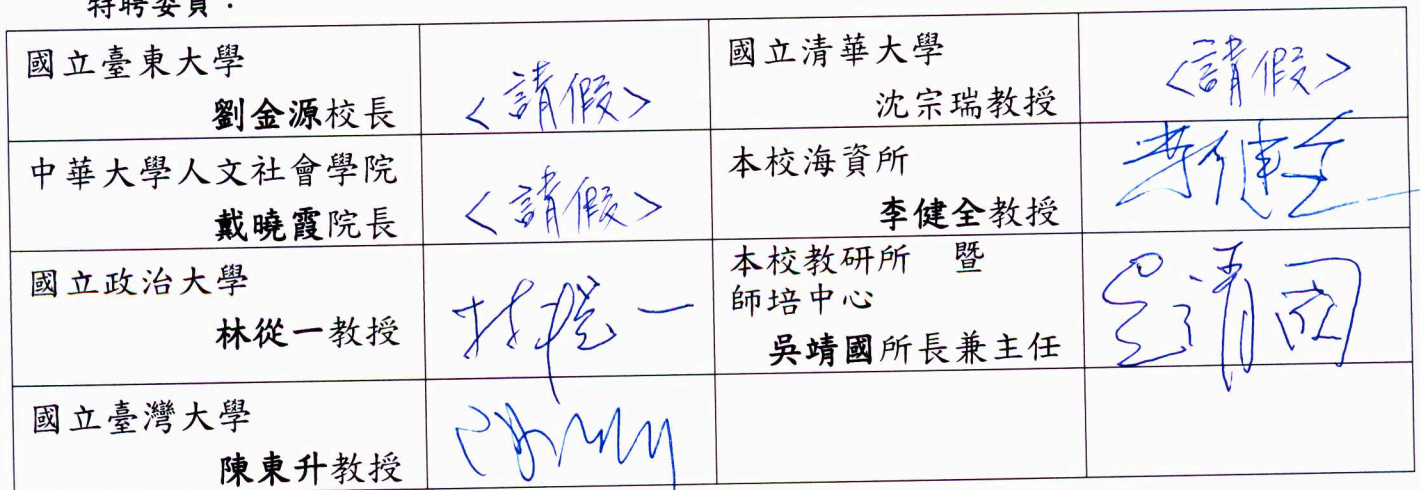 特聘委員：
國立臺東大學
劉金源校長
<請假>
國立清華大學
沈宗瑞教授
<請假>
中華大學人文社會學院
戴曉霞院長
<請假>
本校海資所
李健全教授
李健全
國立政治大學
林從一教授
林從一
本校教研所 暨
師培中心
吳靖國所長兼主任
吳靖國
國立臺灣大學
陳東升教授